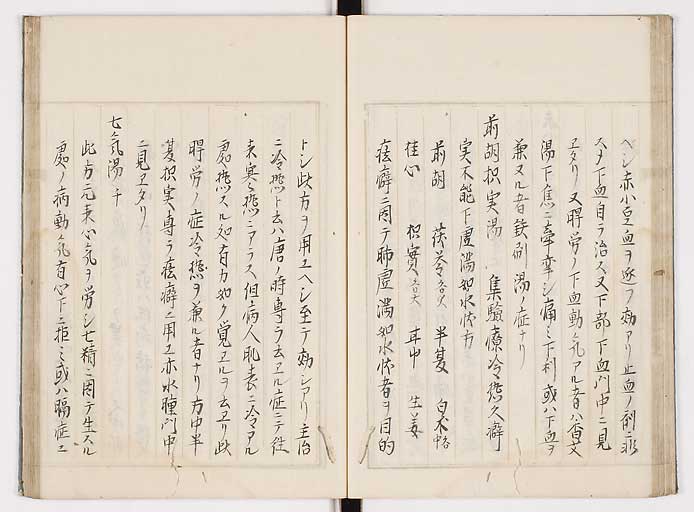 ヘシ赤小豆血ヲ逐フ効アリ止血ノ剤ニ非
ス又下血自ラ治ス又下部下血門中ニ見
ヱタリ又得労ノ下血動気アル者ハ
湯下焦ニ牽牽シ痛ミ下利或ハ下血ヲ
兼ヌル者鉄刷湯ノ症ナリ
前胡枳実湯 集験療冷痃久癖
実不能下虚満如水状方
前胡 茯苓 半夏 白朮
桂心 枳實 甘中 生姜
痃癖ニ因テ肺虚満如水状者ヲ目的
トシ此方ヲ用ユヘシ至テ効シアリ主治
ニ冷痃ト云ハ唐ノ時専ラ云ヱル症ニテ往
来寒ニアラス但病人肌表ニ冷アル
処痃スル如者力如ク覚ヱルヲ云ヱリ此
得労ノ症冷痃ヲ兼ル者ナリ方中半
夏枳実専ラ痃癖ニ用ヱ亦水腫門中
ニ見ヱタリ
七気湯 千
此方元来心気ヲ労シ七精ニ因テ生スル
処ノ病動気有心下ニ拒ミ或ハ膈症ニ